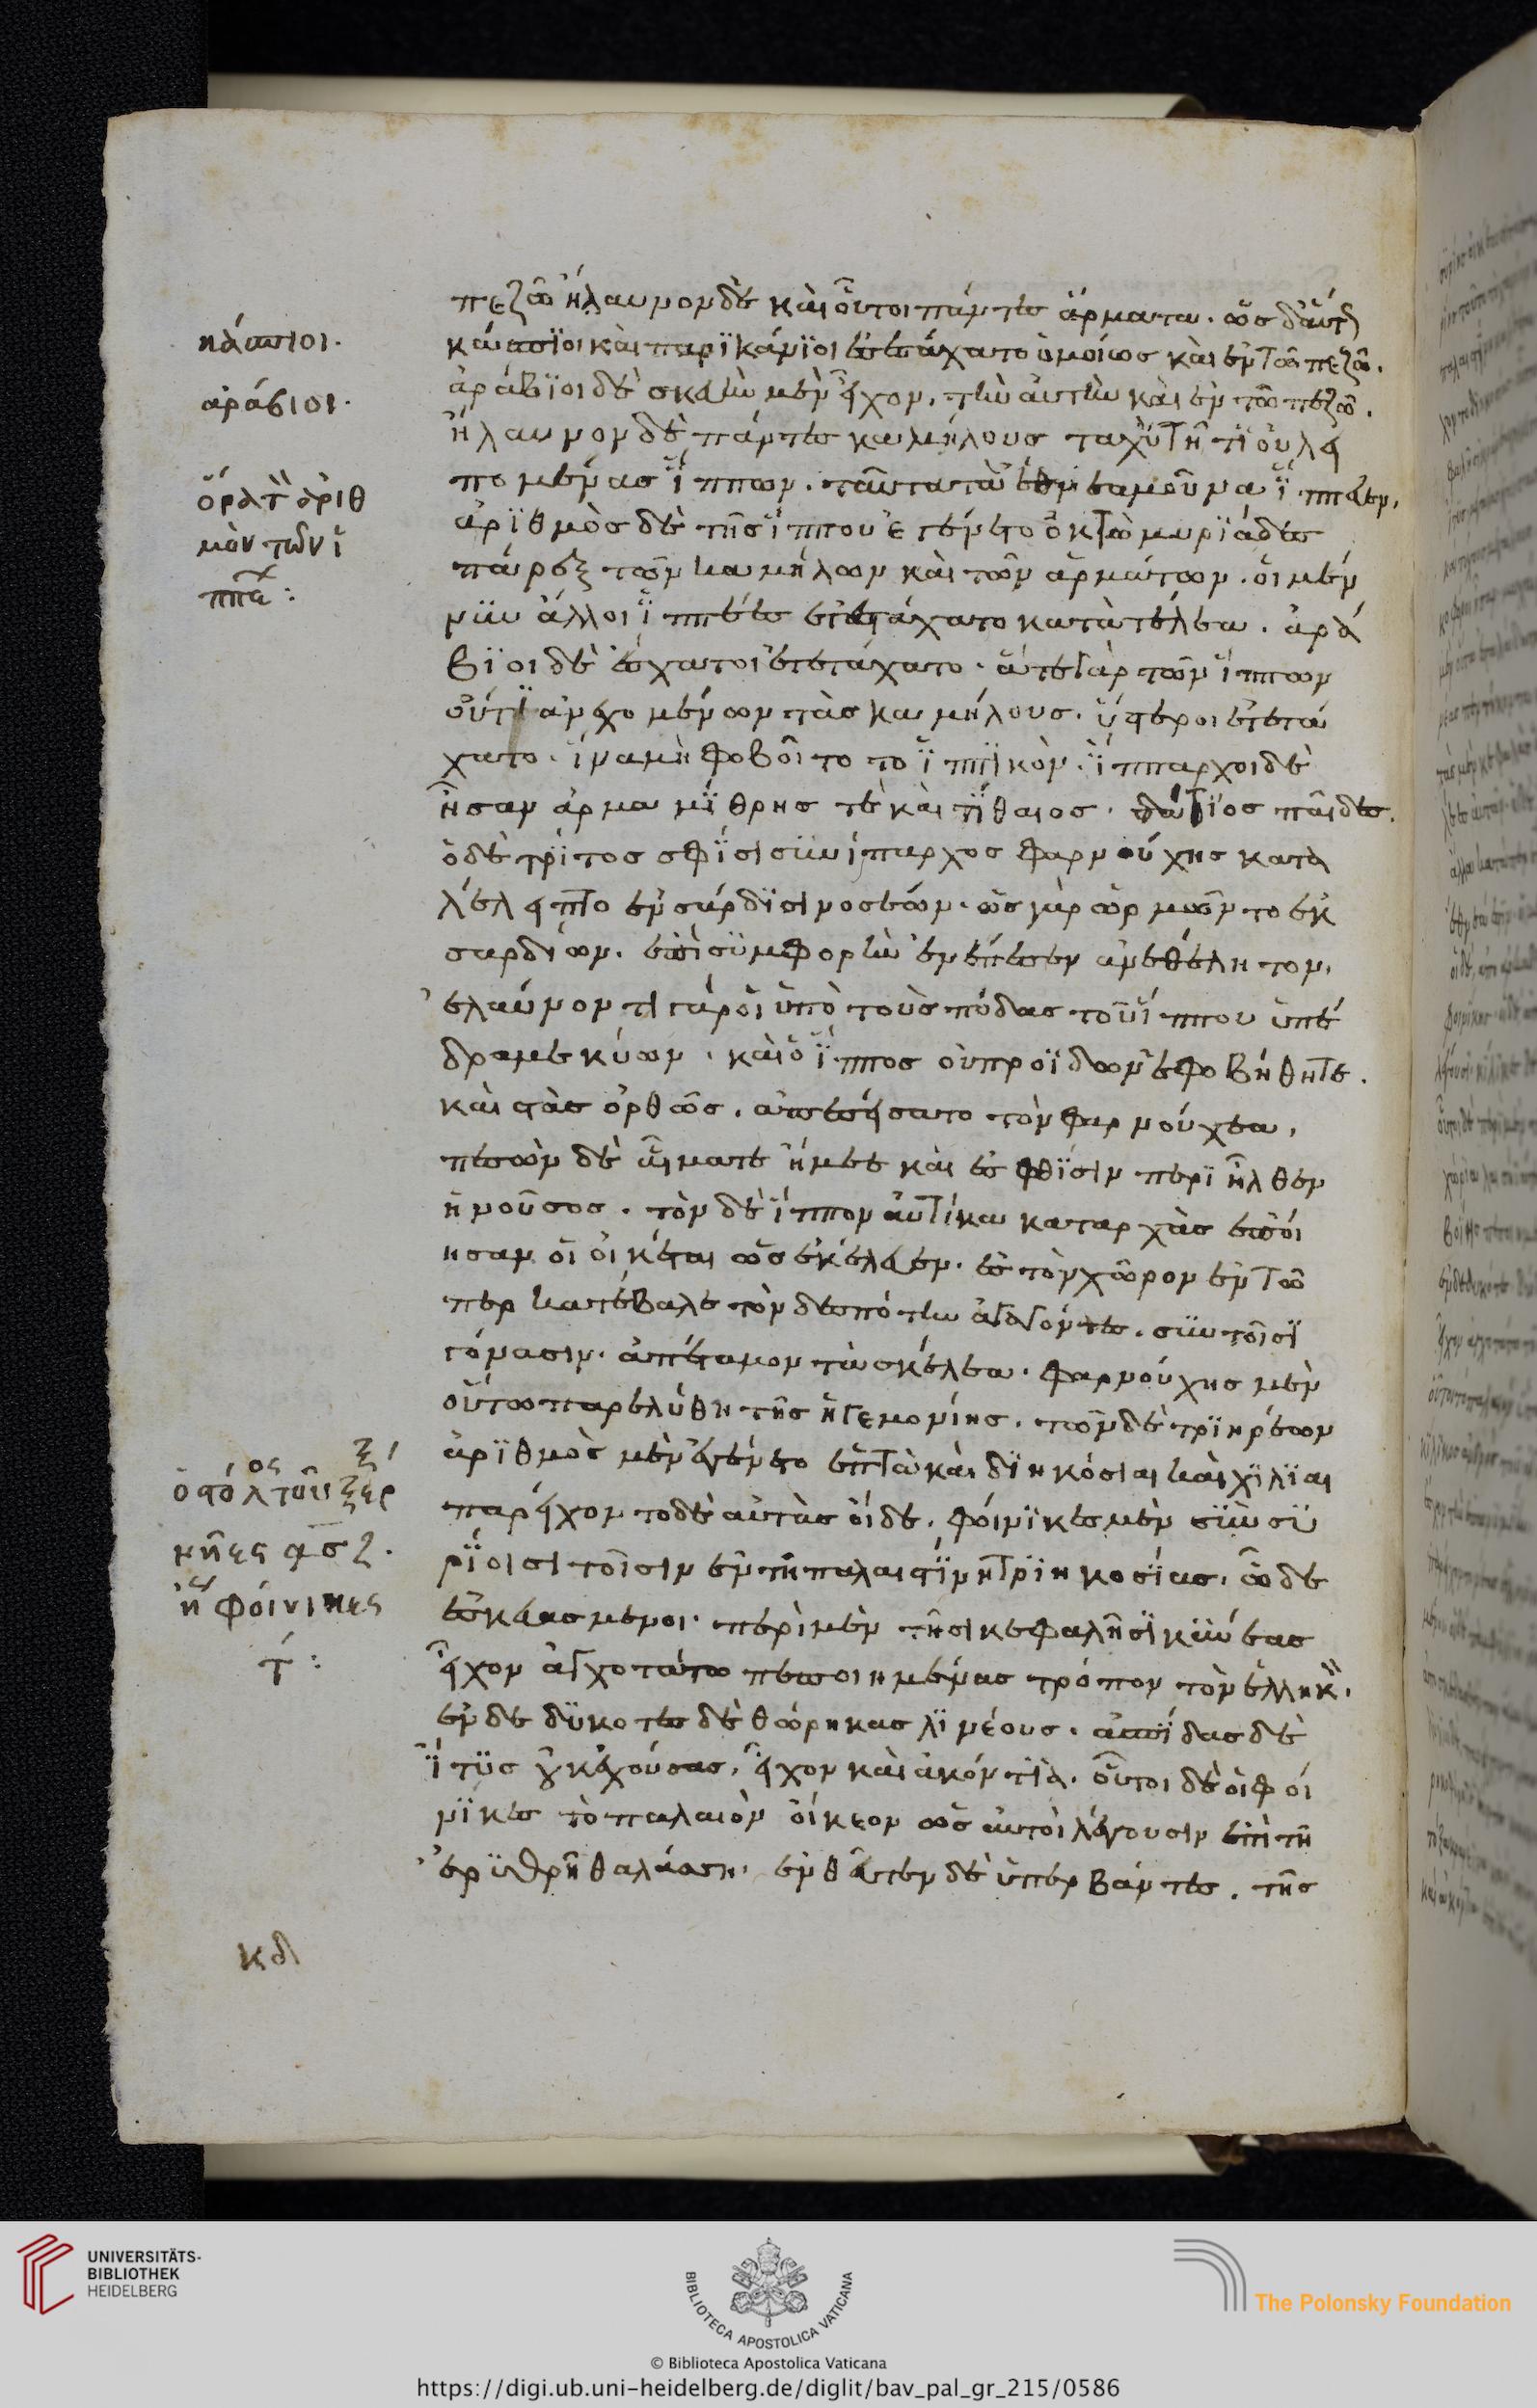 πεζῶ ἤλαυνον δὲ καὶ οὗτοι πάντες ἅρματα. ὡς δ᾽ αὔτως
κάσπιοι.
κάσπϊοι καὶ παρϊκάνϊοι ἐσεσάχατο ὁμοίως καὶ ἐν τῶ πεζῶ.
ἀράβιοι.
ἀράβϊοι δὲ σκευὴν μὲν εἶχον, τὴν αὐτὴν καὶ ἐν τῶ πεζῶ.
ἤλαυνον δὲ πάντες καμήλους ταχϋτῆτϊ οὐ λει
ὅρα τὸν ἀριθ
μὸν τῶν ἵ
ππων:
πομένας ἵππων. ταῦτα τὰ ἔθνεα μοῦνα ἱππεύει,
ἀρϊθμὸς δὲ τῆς ἵππου ἐγένετο ὀκτὼ μυρϊάδες
πάρεξ τῶν καμήλων καὶ τῶν ἁρμάτων. οἱ μέν
νϋν ἄλλοι ἱππέες ἐτετάχατο κατὰ τέλεα. ἀρά
βϊοι δὲ ἔσχατοι ἐτετάχατο. ἅτε γὰρ τῶν ἵππων
οὔτϊ ἀνεχομένων τὰς καμήλους. ὕστεροι ἐτετά
χατο. ἵνα μὴ φοβοῖτο τὸ ἱππϊκόν. ἵππαρχοι δὲ
ἦσαν ἁρμαμίθρης τὲ καὶ τίθαιος. δάτιος παῖδες.
ὁ δὲ τρίτος σφϊσι σϋνίπαρχος φαρνούχης κατα
λέλειπτο ἐν σάρδϊσι νοσέων. ὡς γὰρ ὡρμῶντο ἐκ
σαρδίων. ἐπὶ σϋμφορὴν ἐνέπεσεν ἀνεθέλητον,
ἐλαύνοντι γάρ οἱ ὑπὸ τοὺς πόδας τοῦ ἵππου ὑπέ
δραμε κύων. καὶ ὁ ἵππος οὐ προϊδὼν ἐφοβήθητε.
καὶ στὰς ὀρθὸς. ἀπεσείσατο τὸν φαρνούχεα,
πεσὼν δὲ αἷμάτε ἤμεε καὶ ἐς φθϊσιν περϊῆλθεν
ἡ νοῦσος. τὸν δὲ ἵππον αὐτίκα καταρχὰς ἐποί
ησαν οἱ οἰκέται ὡς ἐκέλευεν. ἐς τὸν χῶρον ἐν τῶ
περ κατέβαλε τὸν δεσπότην ἀγαγόντες. σϋν τοῖσϊ
γόνασιν. ἀπέταμον τὰ σκέλεα. φαρνούχης μὲν
οὕτω παρελύθη τῆς ἡγεμονίης. τῶν δὲ τρϊηρέων
ὁ στόλος τοῦ ξέρ
ξ
νῆες ͵ασζ.
ἀρϊθμὸς μὲν ἐγένετο ἑπτὰ καὶ δϊηκόσιαι καὶ χϊλϊαι
παρείχοντο δὲ αὐτὰς οἵδε. φοίνϊκες μὲν σϋν σϋ
ρϊοισι τοῖσιν ἐν τῆ παλαιστϊνη τρϊηκοσϊας. ὧδε
ὧν φοίνικες
τ:
ἐσκευασμένοι. περὶ μὲν τῆσι κεφαλῆσϊ κϋνέας
εἶχον ἀγχοτάτω πεποιημένας τρόπον τὸν ἑλληνικὸν.
ἐνδεδϋκότες δὲ θώρηκας λϊνέους. ἀσπίδας δὲ
ἴτϋς οὐκ ἐχούσας, εἶχον καὶ ἀκόντϊα. οὗτοι δὲ οἱ φοί
νϊκες τὸ παλαιὸν οἴκεον ὡς αὐτοὶ λέγουσιν ἐπὶ τῆ
ἐρϋθρῆ θαλάσση. ἐνθεῦτεν δὲ ὑπερβάντες. τῆς
κδ
UNIVERSITÄTS-
BIBLIOTHEK
HEIDELBERG
BIBLIOTECA APOSTOLICA VATICANA
The Polonsky Foundation
© Biblioteca Apostolica Vaticana
https://digi.ub.uni-heidelberg.de/diglit/bav_pal_gr_215/0586